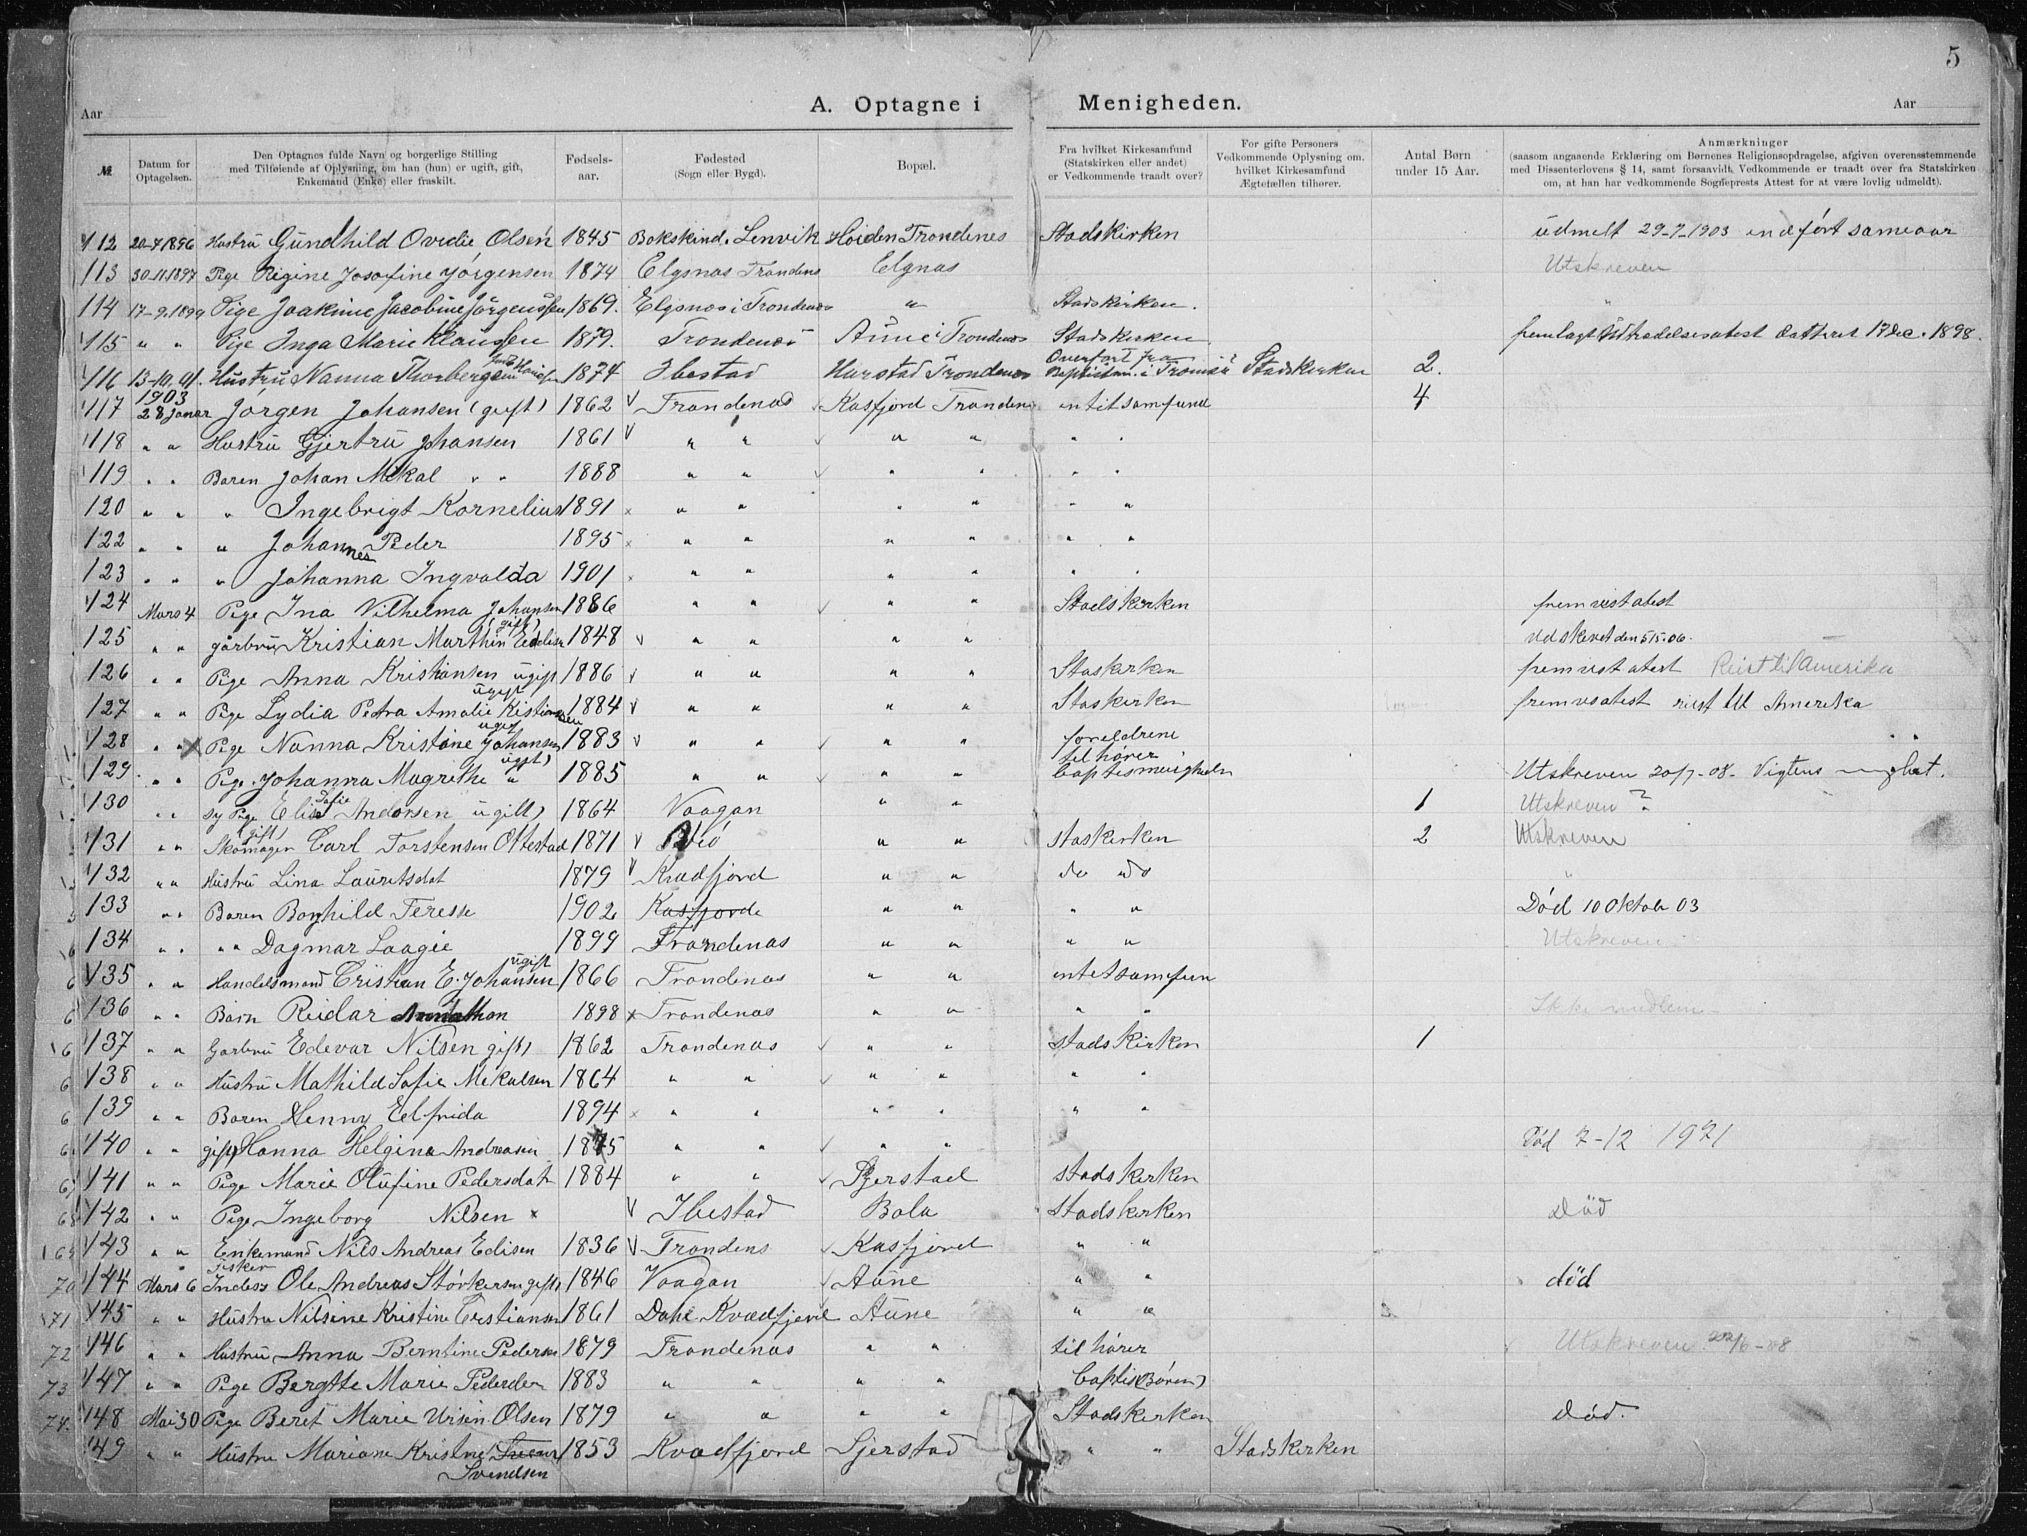 5
Aar A. Optagne i Menigheden. Aar
№ Datum for Optagelsen. Den Optagnes fulde Navn og borgerlige Stilling med Tilføiende af Oplysning, om han (hun) er ugift, gift, Enkemand (Enke) eller fraskilt. Fødsels-aar. Fødested (Sogn eller Bygd). Bopæl. Fra hvilket Kirkesamfund (Statskirken eller andet) er Vedkommende traadt over? For gifte Personers Vedkommende Oplysning om, hvilket Kirkesamfund Ægtefællen tilhører. Antal Børn under 15 Aar. Anmærkninger (saasom angaaende Erklæring om Børnenes Religionsopdragelse, afgiven overensstemmende med Dissenterlovens § 14, samt forsaavidt Vedkommende er traadt over fra Statskirken om, at han har vedkommende Sogneprests Attest for at være lovlig udmeldt).
112 20-7 1896 Hustru Gundhild Ovidie Olsen 1845 Bokskind. Lenvik Høiden Trondenes Stadskirken udmelt 29-7-1903 indført sameaar
113 30.11.1897 Pige Regine Josofine Jørgensen 1874 Elgsnas Trondens Elgnas Utskreven
114 17-9.1899 Pige Joakime Jacobine Jørgenssen 1869. Elgsnæs i Trondenæs " Stadskirken. "
115 " " Pige Inga Marie Klaussen 1879. Trondenæs Aune i Trondenæs Stadskirken fremlagt Udtrædelsesatest datteret 17 Dec. 1898.
116 13-10.01. Hustru Nanna Thorbergsen 1874 Ibestad Harstad Trondenæs Overført fra Baptistm. i Tromsø Stadskirken 2.
117 1903 28 Janar Jørgen Johansen (gift) 1862 Trondenas Kasfjord Tronden intet samfund 4
118 " " Hustru Gjertru Johansen 1861 " " " " " "
119 " " Baren Johan Mekal " " 1888 " " " " " "
120 " " " Ingebrigt Kornelius 1891 " " " " " "
122 " " " Johannes Peder 1895 " " " " " "
123 " " " Johanna Ingvalda 1901 " " " " " "
124 Mars 4 Pige Ina Vilhelma Johansen 1886 " " " " Stadskirken fremvist atest
125 " " gårbru Kristian Marthin Edelisen (gift) 1848 " " " " udskevet den 5/5.06.
126 " " Pige Anna Kristiansen ugift 1886 " " " " Staskirken fremvist atest Reist til Amerika
127 " " Pige Lydia Petra Amalie Kistiansen ugift 1884 " " " " Staskirken fremvsatest riist til Amerika
128 " " Pige Nanna Kristine Johansen ugift 1883 " " " " foreldrene " "
129 " " Pige. Johanna Magrethe " ugift) 1885 " " " " tilhører baptismenigheden Utskreven 20/7-08. Vigtens
130 " " sy Pige Elise Sofie Andersen ugift) 1864 Vaagan " " 1 Utskreven ?
131 " " Skomager (gift) Carl Torstensen Ottestad 1871 " " staskirken 2 Utskreven
132 " " Hustru Lina Lauritsdat 1879 Kvadfjord " " do do "
133 " " Baren Borghild Terese 1902 Kasfjorde " " " " Død 10 Oktob 03
134 " " " " Dagmar Laagie 1899 Trondenas " " " " Utskreven
135 " " Handelsmand Cristian E. Johansen ugift 1866 Trondenas " " intetsamfun
136 " " Barn Reidar 1898 Trondenas " " " " Ikke medlem
137 " " Garbru Edevar Nilsen gift) 1862 Trondenas " " stadskirken 1
138 " " Hustru Mathild Sofie Mekalsen 1864 " " " " " "
139 " " Baren Henny Elfrida 1894 " " " " " "
140 " " gift) Hanna Helgina Andreasen 1875 " " " " Død 7-12 1971
141 " " Pige Marie Olufine Pedersdatr 1884 " " Sjerstad stadskirken
142 " " Pige Ingeborg Nilsen Ibestad Bola Stadskirken død
143 " " Enkemand Nils Andreas Edisen 1836 Trondens Kasfjord " "
70 144 Mars 6 Fisker Inders Ole Andreas Størkersen gift) 1846 Vaagan Aune " " død
71 145 " " Hustru Nilsine Kristine Cristiansen 1861 Dale Kvadfjord Aune " "
72 146 " " Hustru Anna Berntine Pedersen 1879 Trondenas " " tilhører Utskreven 22/6-08
73 147 " " Pige Bergitte Marie Pedersen 1883 " " " " baptist(Børen)
74. 148 Mai 30 Pige Beret Marie Ursin Olsen 1879 " " " " Stadskirken død.
149 " " Hustru Mariane Kristine Svendsen 1853 Kvadfjord Sjerstad " " Stadskirken